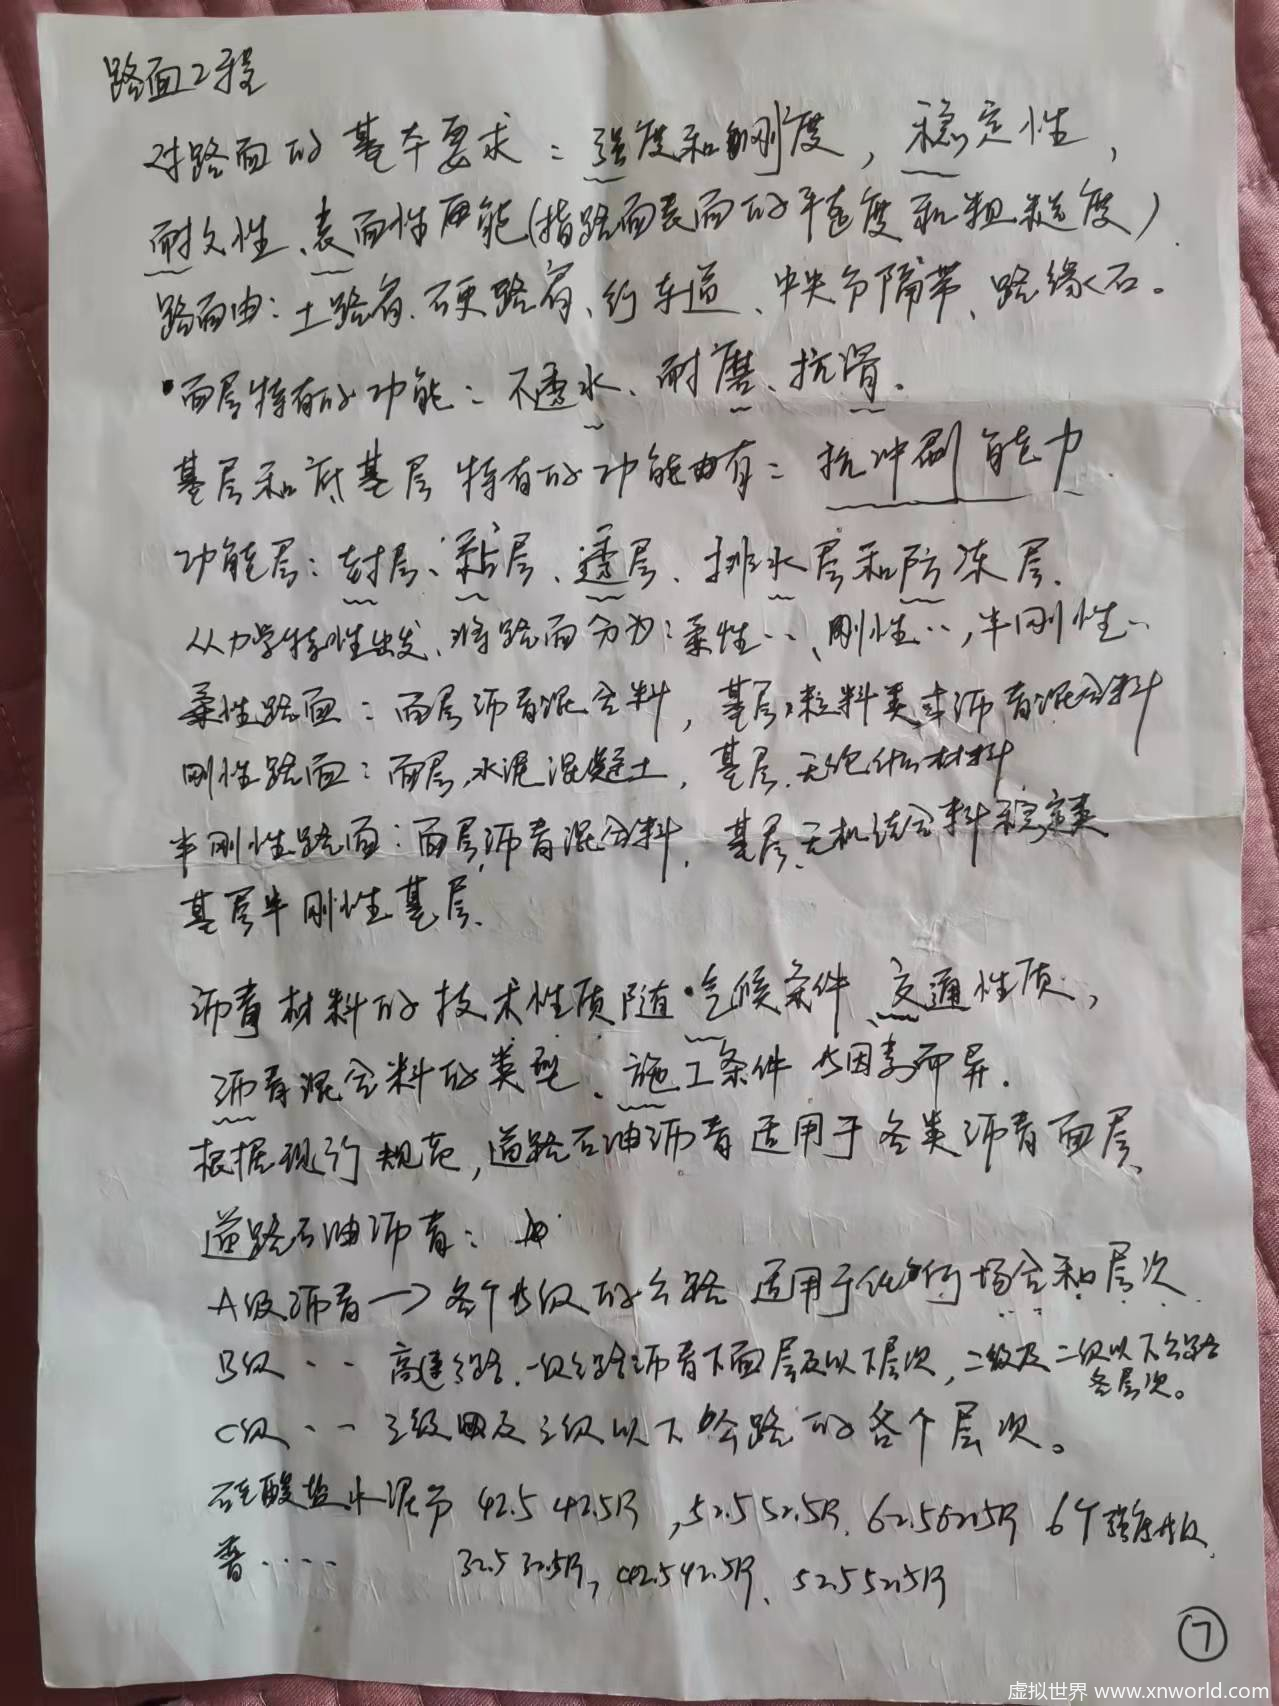 路面工程
对路面的基本要求：强度和刚度，稳定性，
耐久性、表面性能（指路面表面的平整度和粗糙度）.
路面由：土路肩、硬路肩、行车道、中央分隔带、路缘石。
·面层特有的功能：不透水、耐磨、抗滑。
基层和底基层特有的功能有：抗冲刷能力
功能层：封层、黏层、透层、排水层和防冻层、
从力学特性出发、将路面分为：柔性··、刚性··，半刚性··
柔性路面：面层沥青混合料，基层：粒料类或沥青混合料
刚性路面：面层、水泥混凝土，基层、无 材料
半刚性路面：面层沥青混合料，基层、无机结合料稳定类
基层半刚性基层、
沥青材料的技术性质随·气候条件、交通性质，
沥青混合料的类型、施工条件等因素而异.
根据现行规范，道路石油沥青适用于各类沥青面层、
道路石油沥青：
A级沥青→各个等级的公路 适用于任何场合和层次
B级·· 高速公路、一级公路沥青下面层及以下层次，二级及二级以下公路
各层次。
C级·· 三级及三级以下公路的各个层次。
硅酸盐水泥分 42.5 42.5R，52.5 52.5R、62.5 62.5R 6个强度等级、
普···· 32.5 32.5R，42.5 42.5R、52.5 52.5R
⑦
虚拟世界 www.xnworld.com